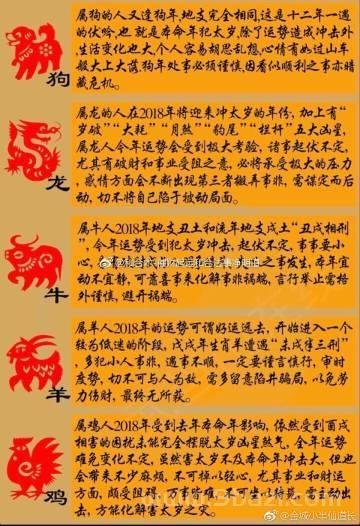 属狗的人又逢狗年,地支完全相同,这是十二年一遇
的伏吟,也就是本命年犯太岁除了运势造成冲击外
生活变化也大个人容易胡思乱想,心情有如过山车
般大上大落,狗年处事必须谨慎,因看似顺利之事亦暗
藏危机。
狗
属龙的人在2018年将迎来冲太岁的年份,加上有“
岁破”“大耗”“月煞”“豹尾”“栏杆”五大凶星,
属龙人今年运势会受到极大考验,诸事起伏不定,
尤其有破财和事业受阻之意,必将承受极大的压力
,感情方面会不断出现第三者搬弄事非,需谋定而后
动,切不将自己陷于被动局面。
龙
属牛人2018年地支丑土和流年地支戌土“丑戌相刑
”,今年运势受到犯太岁冲击,起伏不定,事事要小
心,
发生,本年
宜动不宜静,可靠喜事来化解事非祸端,言行举止需格
外谨慎,避开祸端。
牛
属羊人2018年的运势可谓好运远去,开始进入一个
较为低迷的阶段,戊戌年生肖羊遭遇“未戌穿三刑”
,多犯小人事非,遇事不顺,一定要谨言慎行,审时
度势,切不可与人为敌,需多留意陷井骗局,以免劳
力伤财,最终无所获。
羊
属鸡人2018年受到去年本命年影响,依然受到酉戌
相害的困扰,未能完全摆脱太岁凶星煞气,全年运势
难免变化不定,虽然害太岁不及本命年冲击大,但也
会带来不少麻烦,不可掉以轻心,尤其事业和财运
方面,颇受阻滞
出击,方能化解害太岁之灾。
鸡
@合城小半仙道长